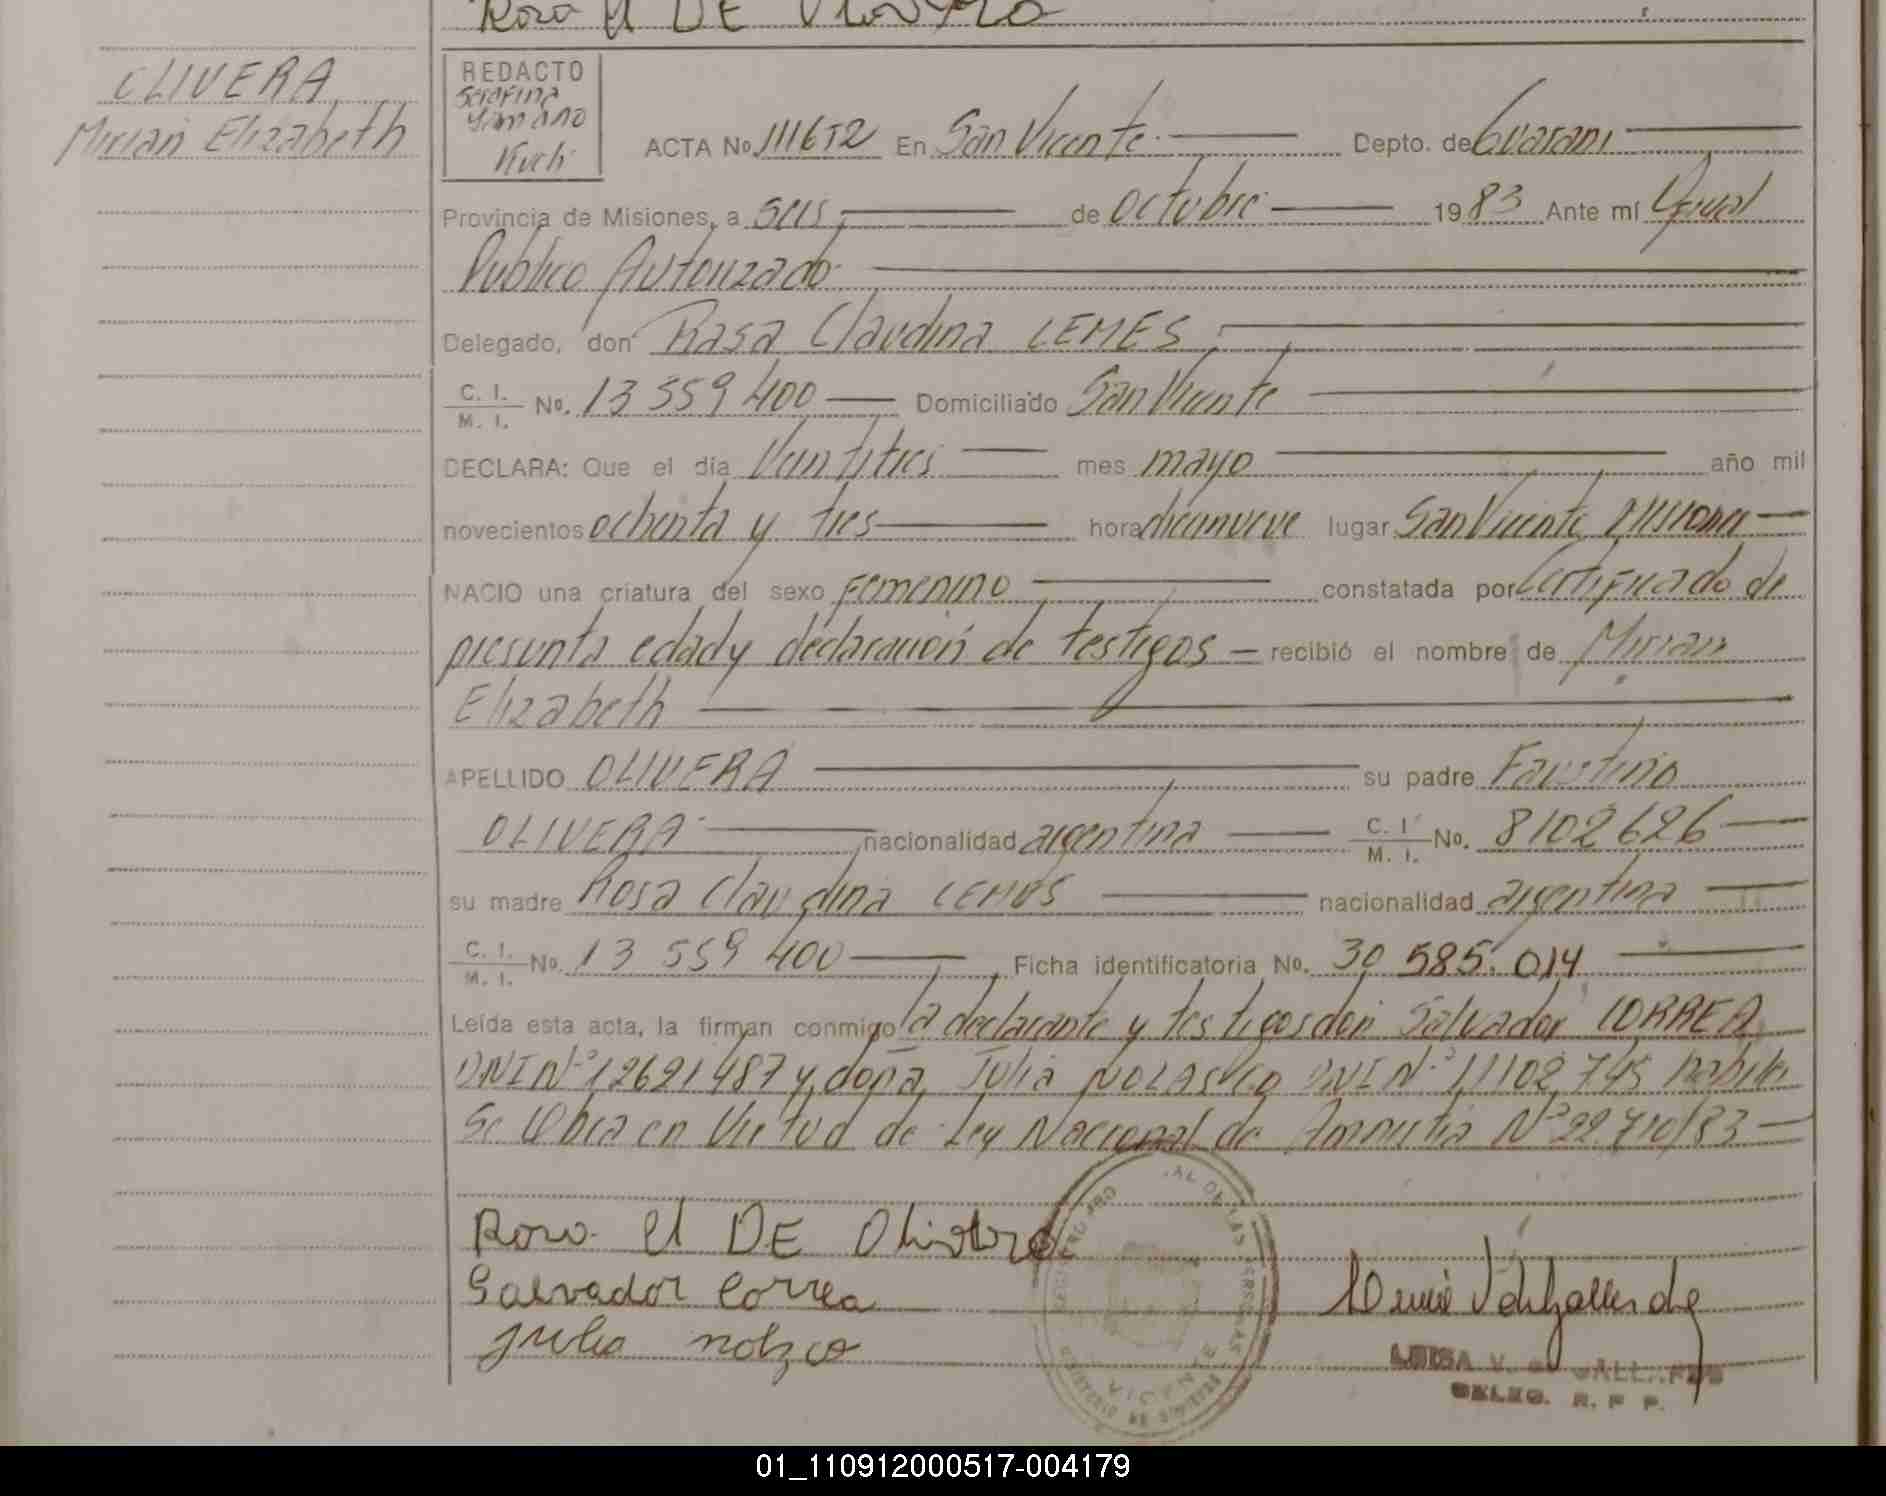 Rosa H DE Olivera
OLIVERA
Mirian Elizabeth
REDACTO
Serafina
Kuchi
ACTA No. En San Vicente Depto. de Guarani
Provincia de Misiones, a seis de octubre 1983 Ante mí
Publico Autorizado
Delegado, don Rosa Claudina LEMES
C. I. / M. I. No. 13 559 400 Domiciliado San Vicente
DECLARA: Que el día Veintitres mes mayo año mil
novecientos ochenta y tres hora diecinueve lugar San Vicente Misiones
NACIO una criatura del sexo Femenino constatada por Certificado de
presunta edad y declaración de testigos – recibió el nombre de Mirian
Elizabeth
APELLIDO OLIVERA su padre Faustino
OLIVERA nacionalidad argentina C. I / M. I. No. 8102626
su madre Rosa Claudina LEMES nacionalidad argentina
C. I. / M. I. No. 13 559 400 Ficha identificatoria No. 30 585.014
Leída esta acta, la firman conmigo la declarante y testigos don Salvador CORREA
DNI Nº 12621487 y doña Julia NOLASCO DNI Nº 11102745
Se labra en Virtud de Ley Nacional de Amnistia Nº 22.710/83
Rosa H DE Olivera
Salvador Correa
Julia nolzco
VICENTE
LUISA V. de GALLARDO
DELEG. R. P. P.
01_110912000517-004179